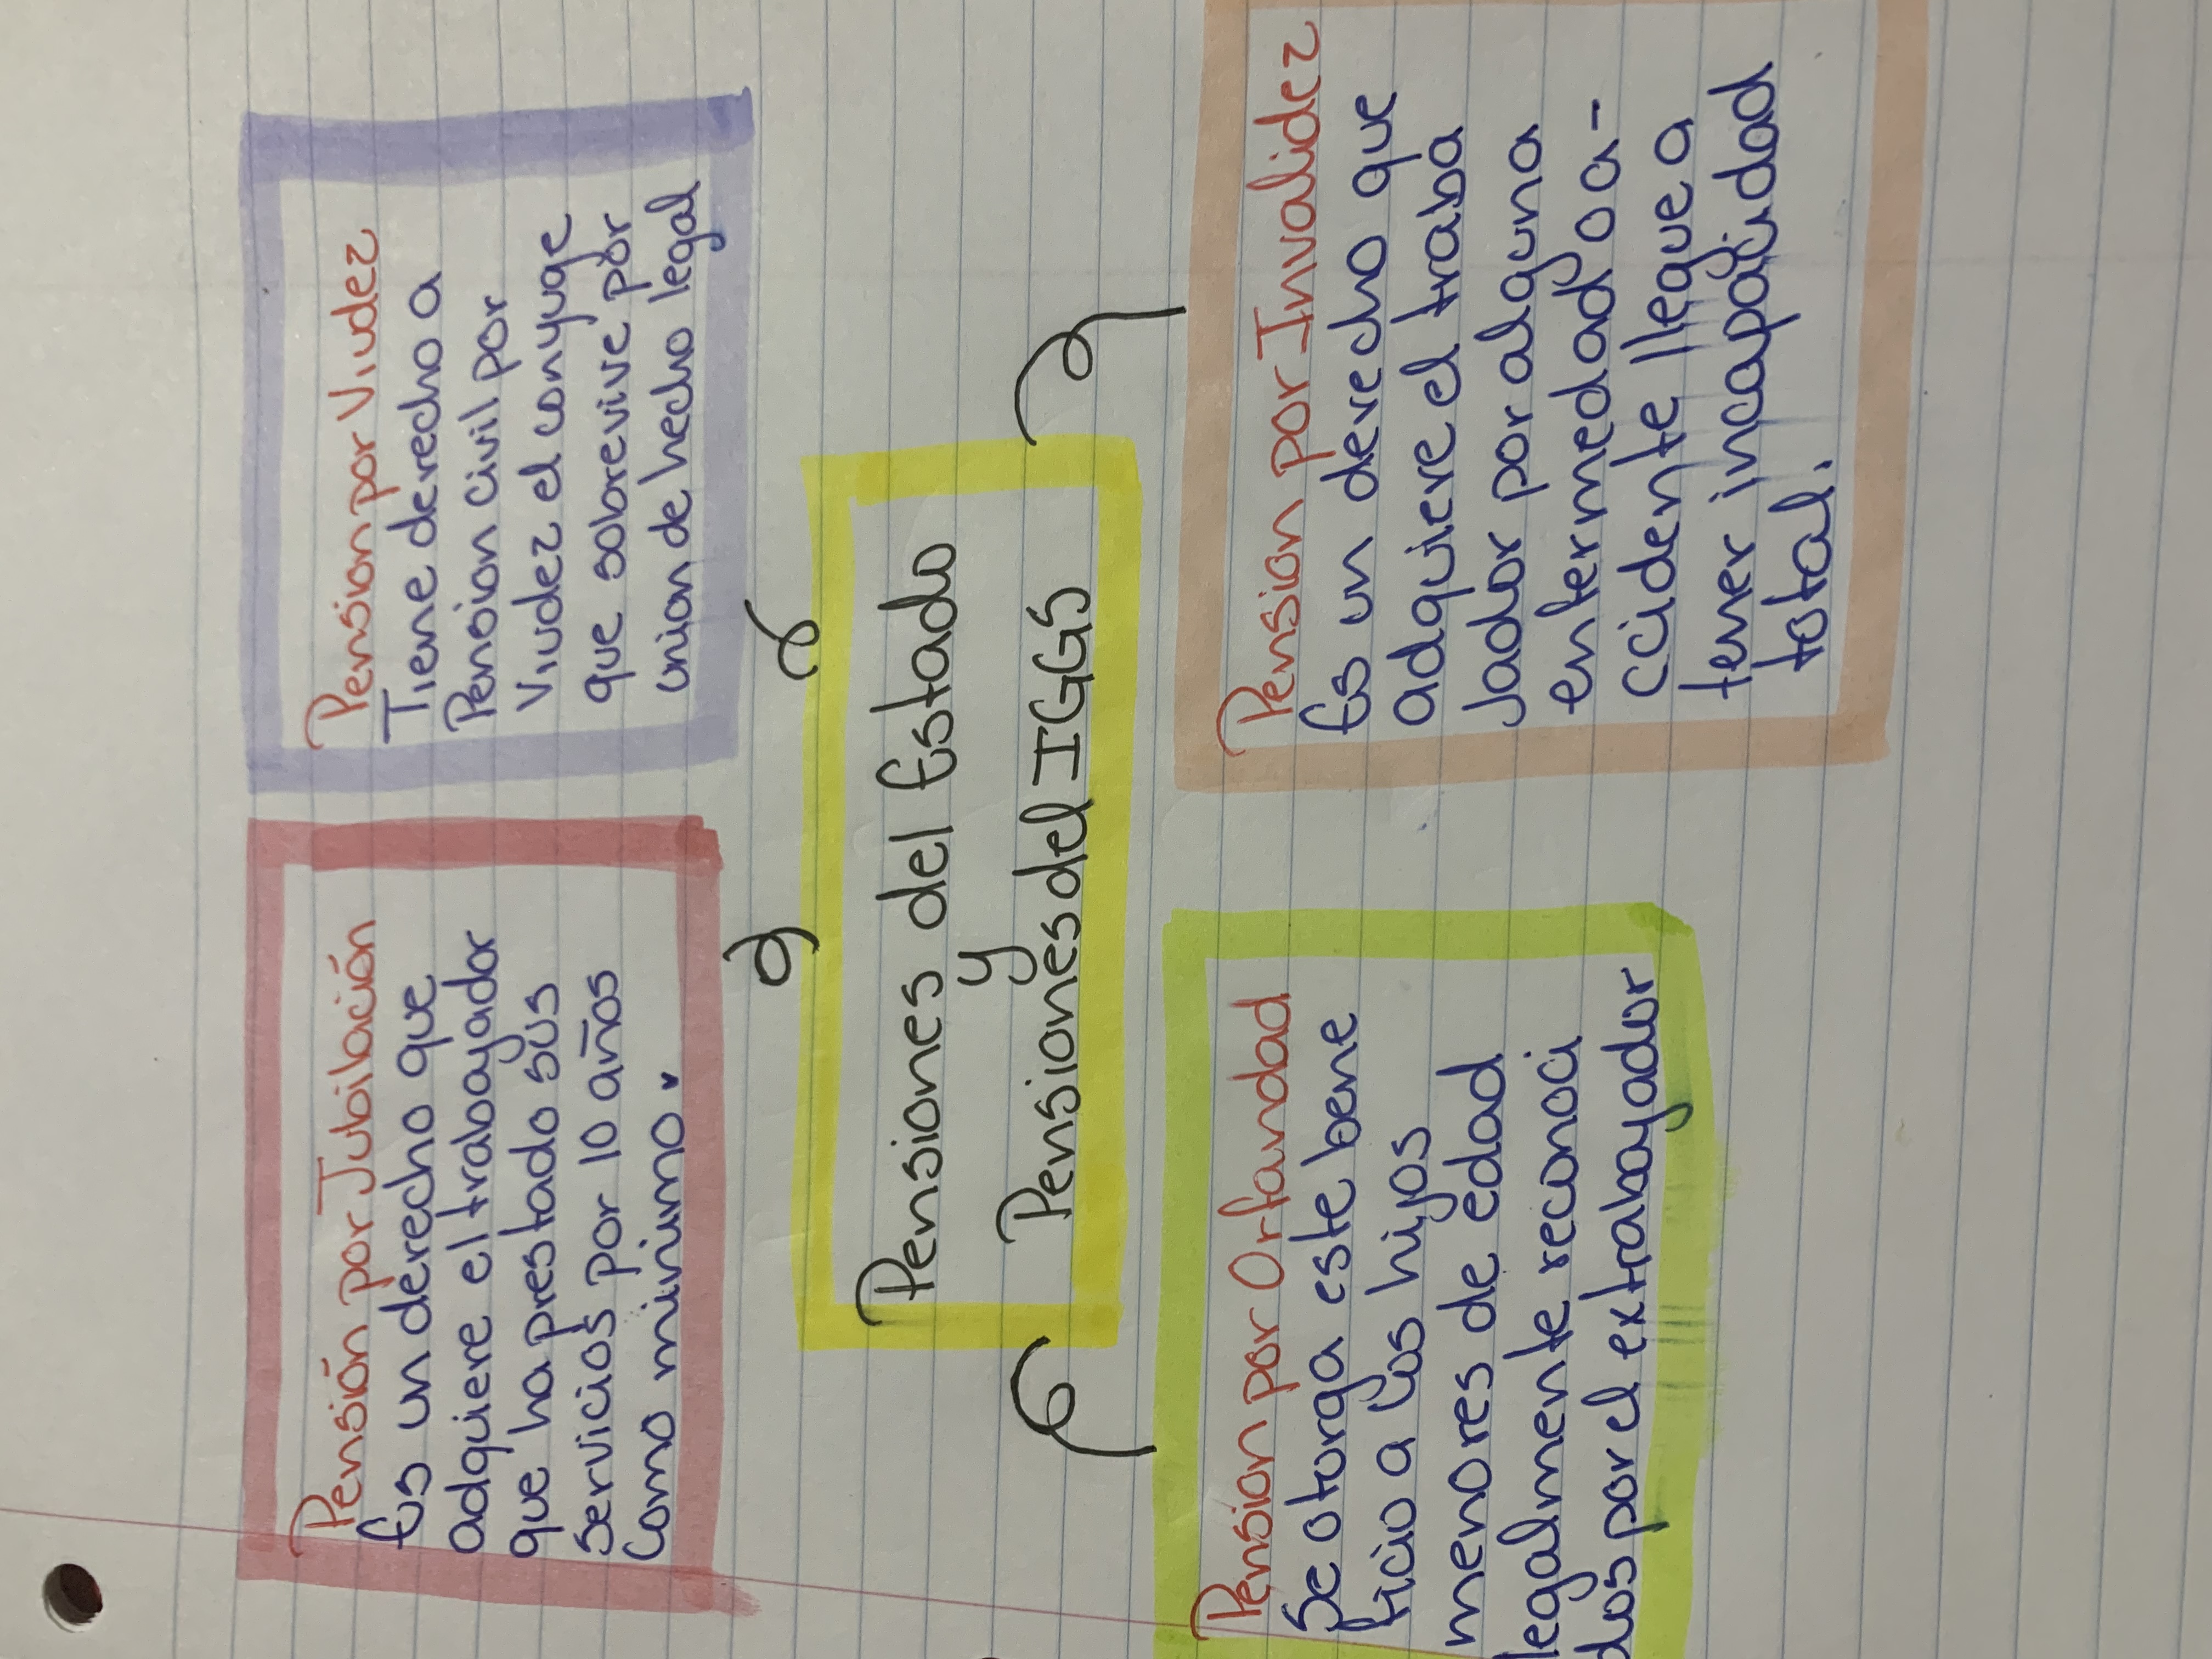 Pensión por Jubilación
Es un derecho que
adquiere el trabayador
que ha prestado sus
servicios por 10 años
como minimo.
Pension por Viudez
Tiene derecho a
Pension civil por
Viudez el conyuge
que sobrevive por
union de hecho legal
Pensiones del Estado
y
Pensiones del IGGS
Pension por Orfandad
Se otorga este bene
ficio a los hijos
menores de edad
legalmente reconoci
dos por el extrabayador
Pension por Invalidez
Es un derecho que
adquiere el traba
Jador por alguna
enfermedad o a-
ccidente llegue a
tener incapacidad
total.